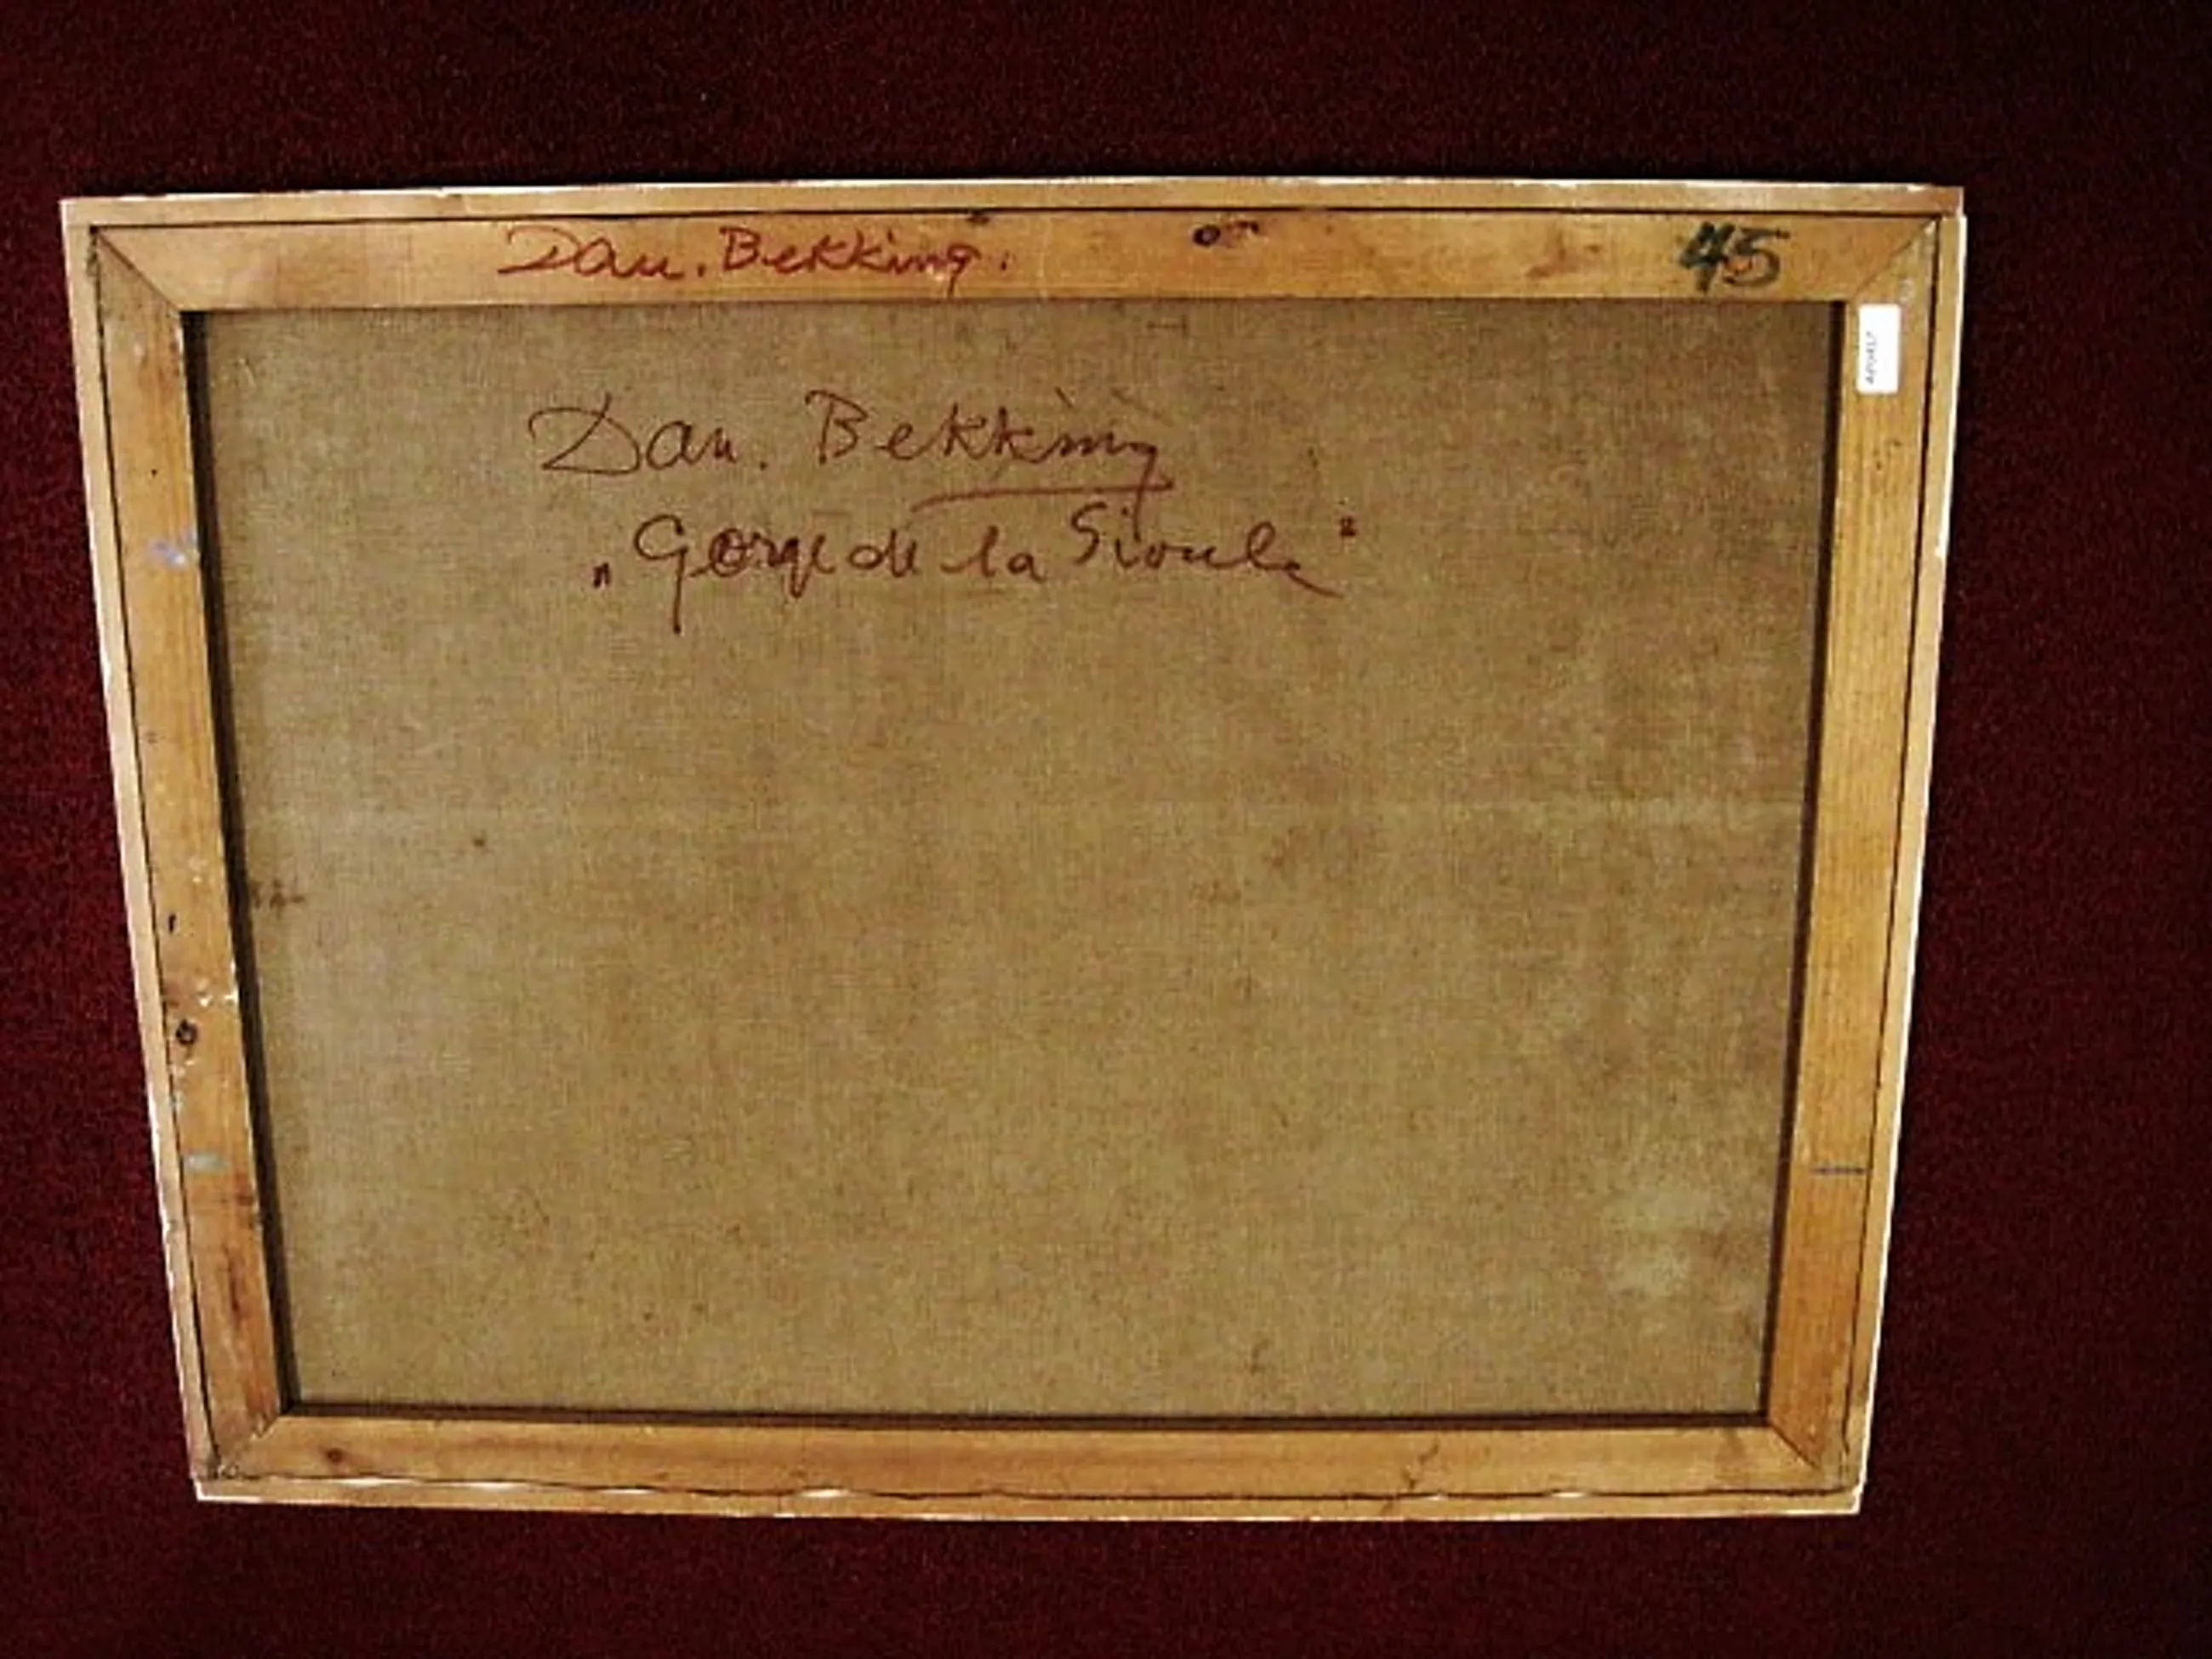 Dan. Bekking.
45
Dan. Bekking
„Gorge de la Sioule"